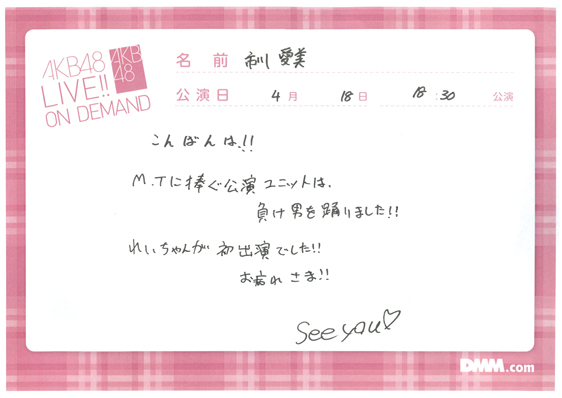 AKB48
LIVE!!
ON DEMAND
AKB
48
名前 市川 愛美
公演日 4月 18日 18:30 公演
こんばんは!!
M.Tに捧ぐ公演ユニットは、
負け男を踊りました!!
れいちゃんが初出演でした!!
お疲れさま!!
See you♡
DMM.com